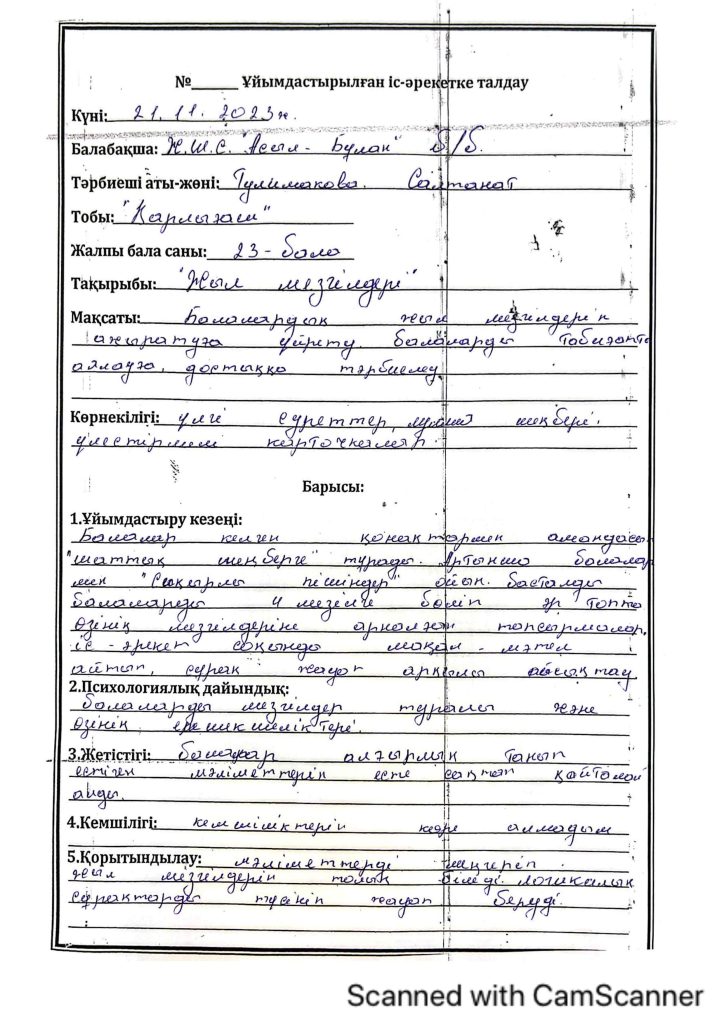 №_____ Ұйымдастырылған іс-әрекетке талдау
Күні: 21.11.2023ж.
Балабақша: Ж.Ш.С. "Асыл-Бұлақ" б/б.
Тәрбиеші аты-жөні: Тулимакова. Салтанат
Тобы: "Қарлығаш"
Жалпы бала саны: 23-бала
Тақырыбы: "Жыл мезгілдері"
Мақсаты: Балалардың жыл мезгілдерін
ажыратуға үйрету, балаларды табиғатты
аялауға, достыққа тәрбиелеу
Көрнекілігі: үлгі суреттер, шеңбері.
үлестірмелі карточкалар.
Барысы:
1.Ұйымдастыру кезеңі:
Балалар келген қонақтармен амандасып
"шаттық шеңберге" тұрады. Артынша балалар
мен "Сиқырлы пішіндер" ойын басталды
балаларды 4 мезгілге бөліп әр топта
өзінің мезгілдеріне арналған тапсырмалар.
іс-әрекет соңында мақал-мәтел
айтып, сұрақ жауап арқылы
2.Психологиялық дайындық:
балаларды мезгілдер туралы және
өзінің ерекшеліктері.
3.Жетістігі: балалар алғырлық танып
естіген мәліметтерін есте сақтап қайталай
алды.
4.Кемшілігі: кемшіліктерін көре алмадым
5.Қорытындылау: мәліметтерді меңгеріп.
жыл мезгілдерін толық біледі. логикалық
сұрақтарды түсініп жауап беруді.
Scanned with CamScanner